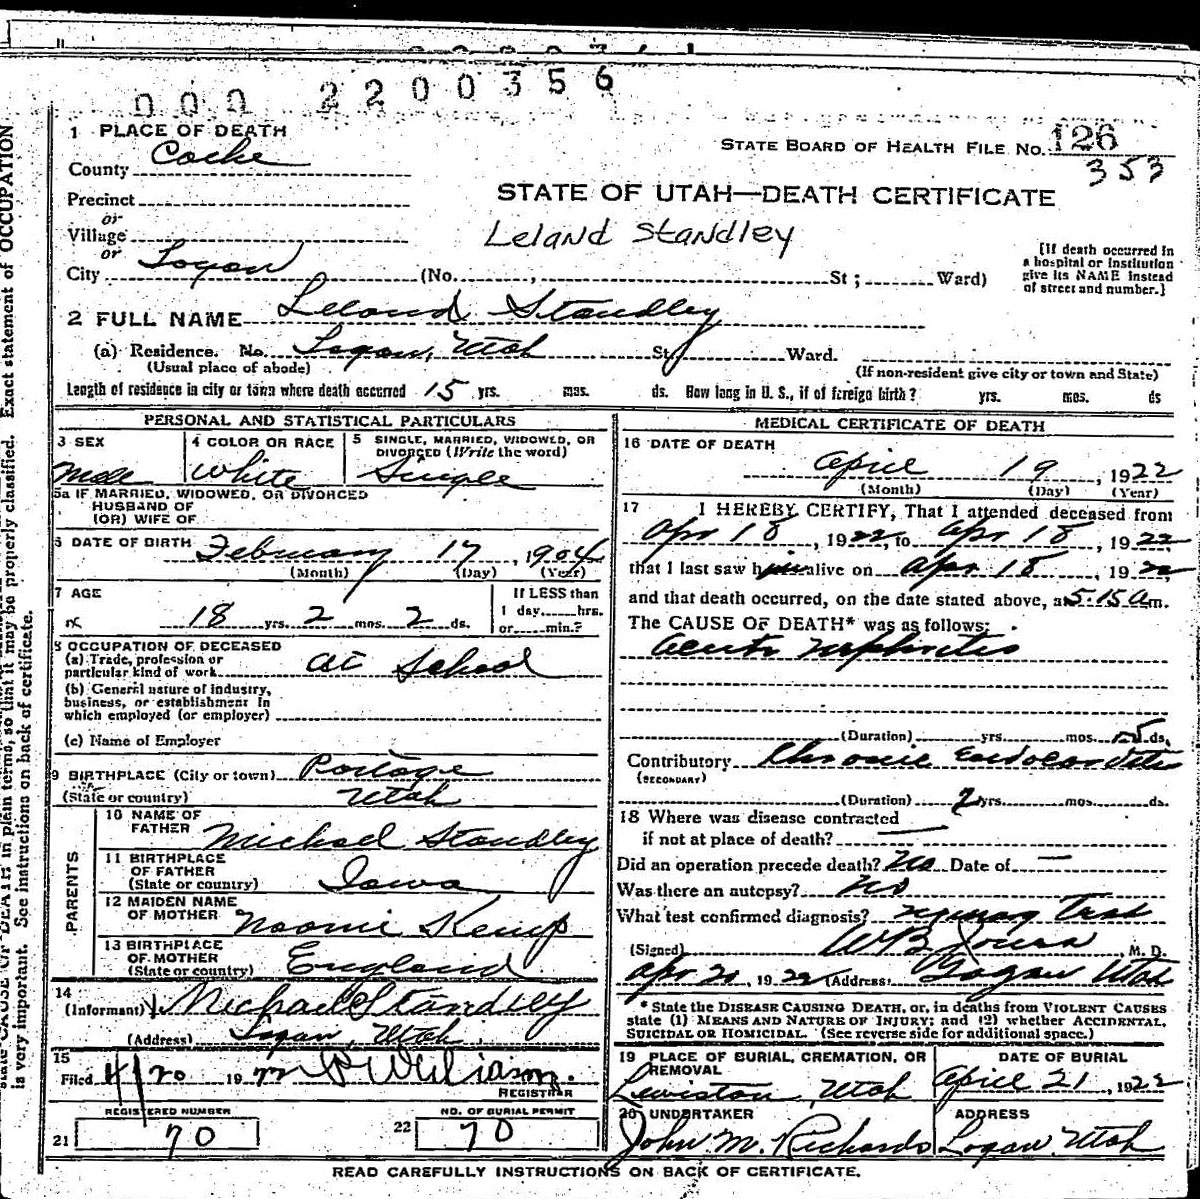 000 2200356
1 PLACE OF DEATH
STATE BOARD OF HEALTH FILE NO. 126
353
County Cache
Precinct
STATE OF UTAH—DEATH CERTIFICATE
or
Village
Leland Standley
or
City Logan (No. , St ; Ward)
[If death occurred in
a hospital or institution
give its NAME instead
of street and number.]
2 FULL NAME Leland Standley
(a) Residence. No. Logan, Utah St. Ward.
(Usual place of abode)
(If non-resident give city or town and State)
Length of residence in city or town where death occurred 15 yrs. mos. ds. How long in U. S., if of foreign birth? yrs. mos. ds
PERSONAL AND STATISTICAL PARTICULARS
3 SEX
Male
4 COLOR OR RACE
White
5 SINGLE, MARRIED, WIDOWED, OR
DIVORCED (Write the word)
Single
5a IF MARRIED, WIDOWED, OR DIVORCED
HUSBAND OF
(OR) WIFE OF
6 DATE OF BIRTH February 17, 1904
(Month) (Day) (Year)
7 AGE
18 yrs. 2 mos. 2 ds.
If LESS than
1 day, hrs.
or min.?
8 OCCUPATION OF DECEASED
(a) Trade, profession or
particular kind of work At School
(b) General nature of industry,
business, or establishment in
which employed (or employer)
(c) Name of Employer
9 BIRTHPLACE (City or town) Portage
(State or country) Utah
PARENTS
10 NAME OF
FATHER Michael Standley
11 BIRTHPLACE
OF FATHER
(State or country) Iowa
12 MAIDEN NAME
OF MOTHER Naomi Kemp
13 BIRTHPLACE
OF MOTHER
(State or country) England
14
(Informant) Michael Standley
(Address) Logan, Utah
15
Filed 4/20 1922 Williams.
REGISTRAR
REGISTERED NUMBER
21 70
NO. OF BURIAL PERMIT
22 70
MEDICAL CERTIFICATE OF DEATH
16 DATE OF DEATH
April 19, 1922
(Month) (Day) (Year)
17 I HEREBY CERTIFY, That I attended deceased from
Apr 18, 1922, to Apr 18, 1922
that I last saw him alive on Apr 18 1922
and that death occurred, on the date stated above, at 5-15 a.m.
The CAUSE OF DEATH* was as follows:
Acute Nephritis
(Duration) yrs. mos. 15 ds.
Contributory Chronic Endocarditis
(SECONDARY)
(Duration) 2 yrs. mos. ds.
18 Where was disease contracted
if not at place of death?
Did an operation precede death? No Date of —
Was there an autopsy? No
What test confirmed diagnosis?
(Signed) WB Jones M. D.
Apr 20, 1922 (Address) Logan Utah
* State the DISEASE CAUSING DEATH, or, in deaths from VIOLENT CAUSES
state (1) MEANS AND NATURE OF INJURY; and (2) whether ACCIDENTAL,
SUICIDAL OR HOMICIDAL. (See reverse side for additional space.)
19 PLACE OF BURIAL, CREMATION, OR
REMOVAL
Lewiston, Utah
DATE OF BURIAL
April 21, 1922
20 UNDERTAKER
John M. Richards
ADDRESS
Logan, Utah
READ CAREFULLY INSTRUCTIONS ON BACK OF CERTIFICATE.
state CAUSE OF DEATH in plain terms, so that it may be properly classified. Exact statement of OCCUPATION
is very important. See instructions on back of certificate.